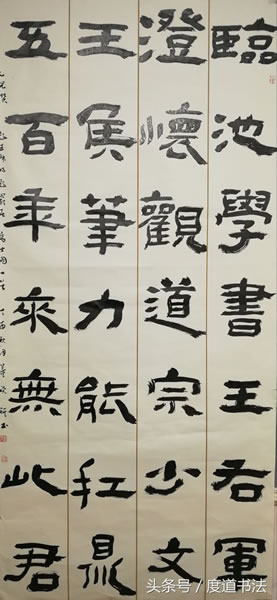 臨池學書王右軍
澄懷觀道宗少文
王侯筆力能扛鼎
五百年來無此君
头条号 / 度道书法